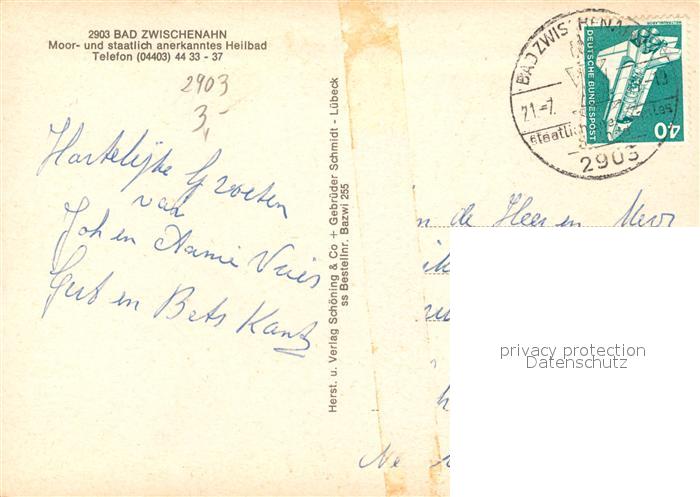 2903 BAD ZWISCHENAHN
Moor- und staatlich anerkanntes Heilbad
Telefon (04403) 44 33 - 37
2903
3,-
Hartelijke Groeten
van
Joh en Annie Vries
Gert en Bets Kantz
Herst. u. Verlag Schöning & Co + Gebrüder Schmidt - Lübeck
ss Bestellnr. Bazwi 255
BAD ZWISCHENAHN
21.-7.
staatlich
2903
DEUTSCHE BUNDESPOST
40
de Heer en Mevr
Ne
privacy protection
Datenschutz